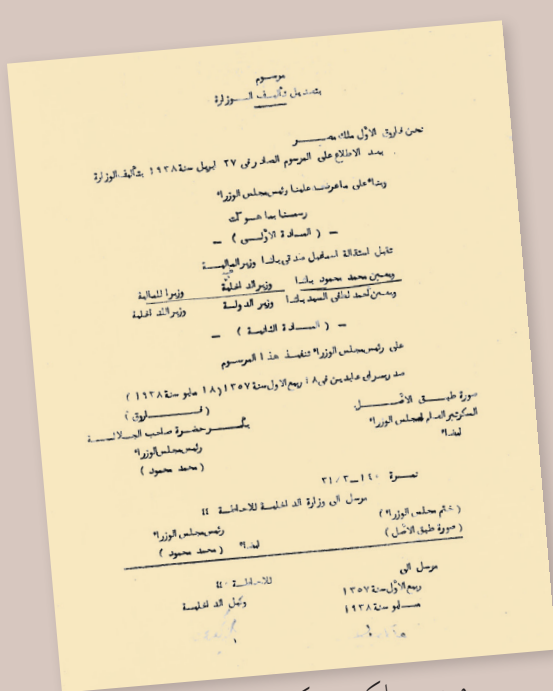 مرسوم
بتعديل تأليف الوزارة
نحن فاروق الأول ملك مصر
بعد الاطلاع على المرسوم الصادر فى ٢٧ ابريل سنة ١٩٣٨ بتأليف الوزارة
وبناء على ما عرضه علينا رئيس مجلس الوزراء
رسمنا بما هو آت
— ( المادة الأولى ) —
تقبل استقالة اسماعيل صدقى باشا وزير المالية
ويعين محمد محمود باشا وزير الداخلية وزيرا للمالية
ويعين احمد لطفى السيد باشا وزير الدولة وزير الداخلية
— ( المادة الثانية ) —
على رئيس مجلس الوزراء تنفيذ هذا المرسوم
صدر بسراى عابدين فى ١٨ ربيع الاول سنة ١٣٥٧ ( ١٨ مايو سنة ١٩٣٨ )
صورة طبق الأصل ( فاروق )
السكرتير العام لمجلس الوزراء بأمر حضرة صاحب الجلالة
امضاء رئيس مجلس الوزراء
( محمد محمود )
نمرة ١٤٠ــ٣/٣١
مرسل الى وزارة الداخلية للاحاطة ٤٤
( ختم مجلس الوزراء ) رئيس مجلس الوزراء
( صورة طبق الأصل ) امضاء ( محمد محمود )
مرسل الى للاحاطة
ربيع الأول سنة ١٣٥٧ وكيل الداخلية
مايو سنة ١٩٣٨